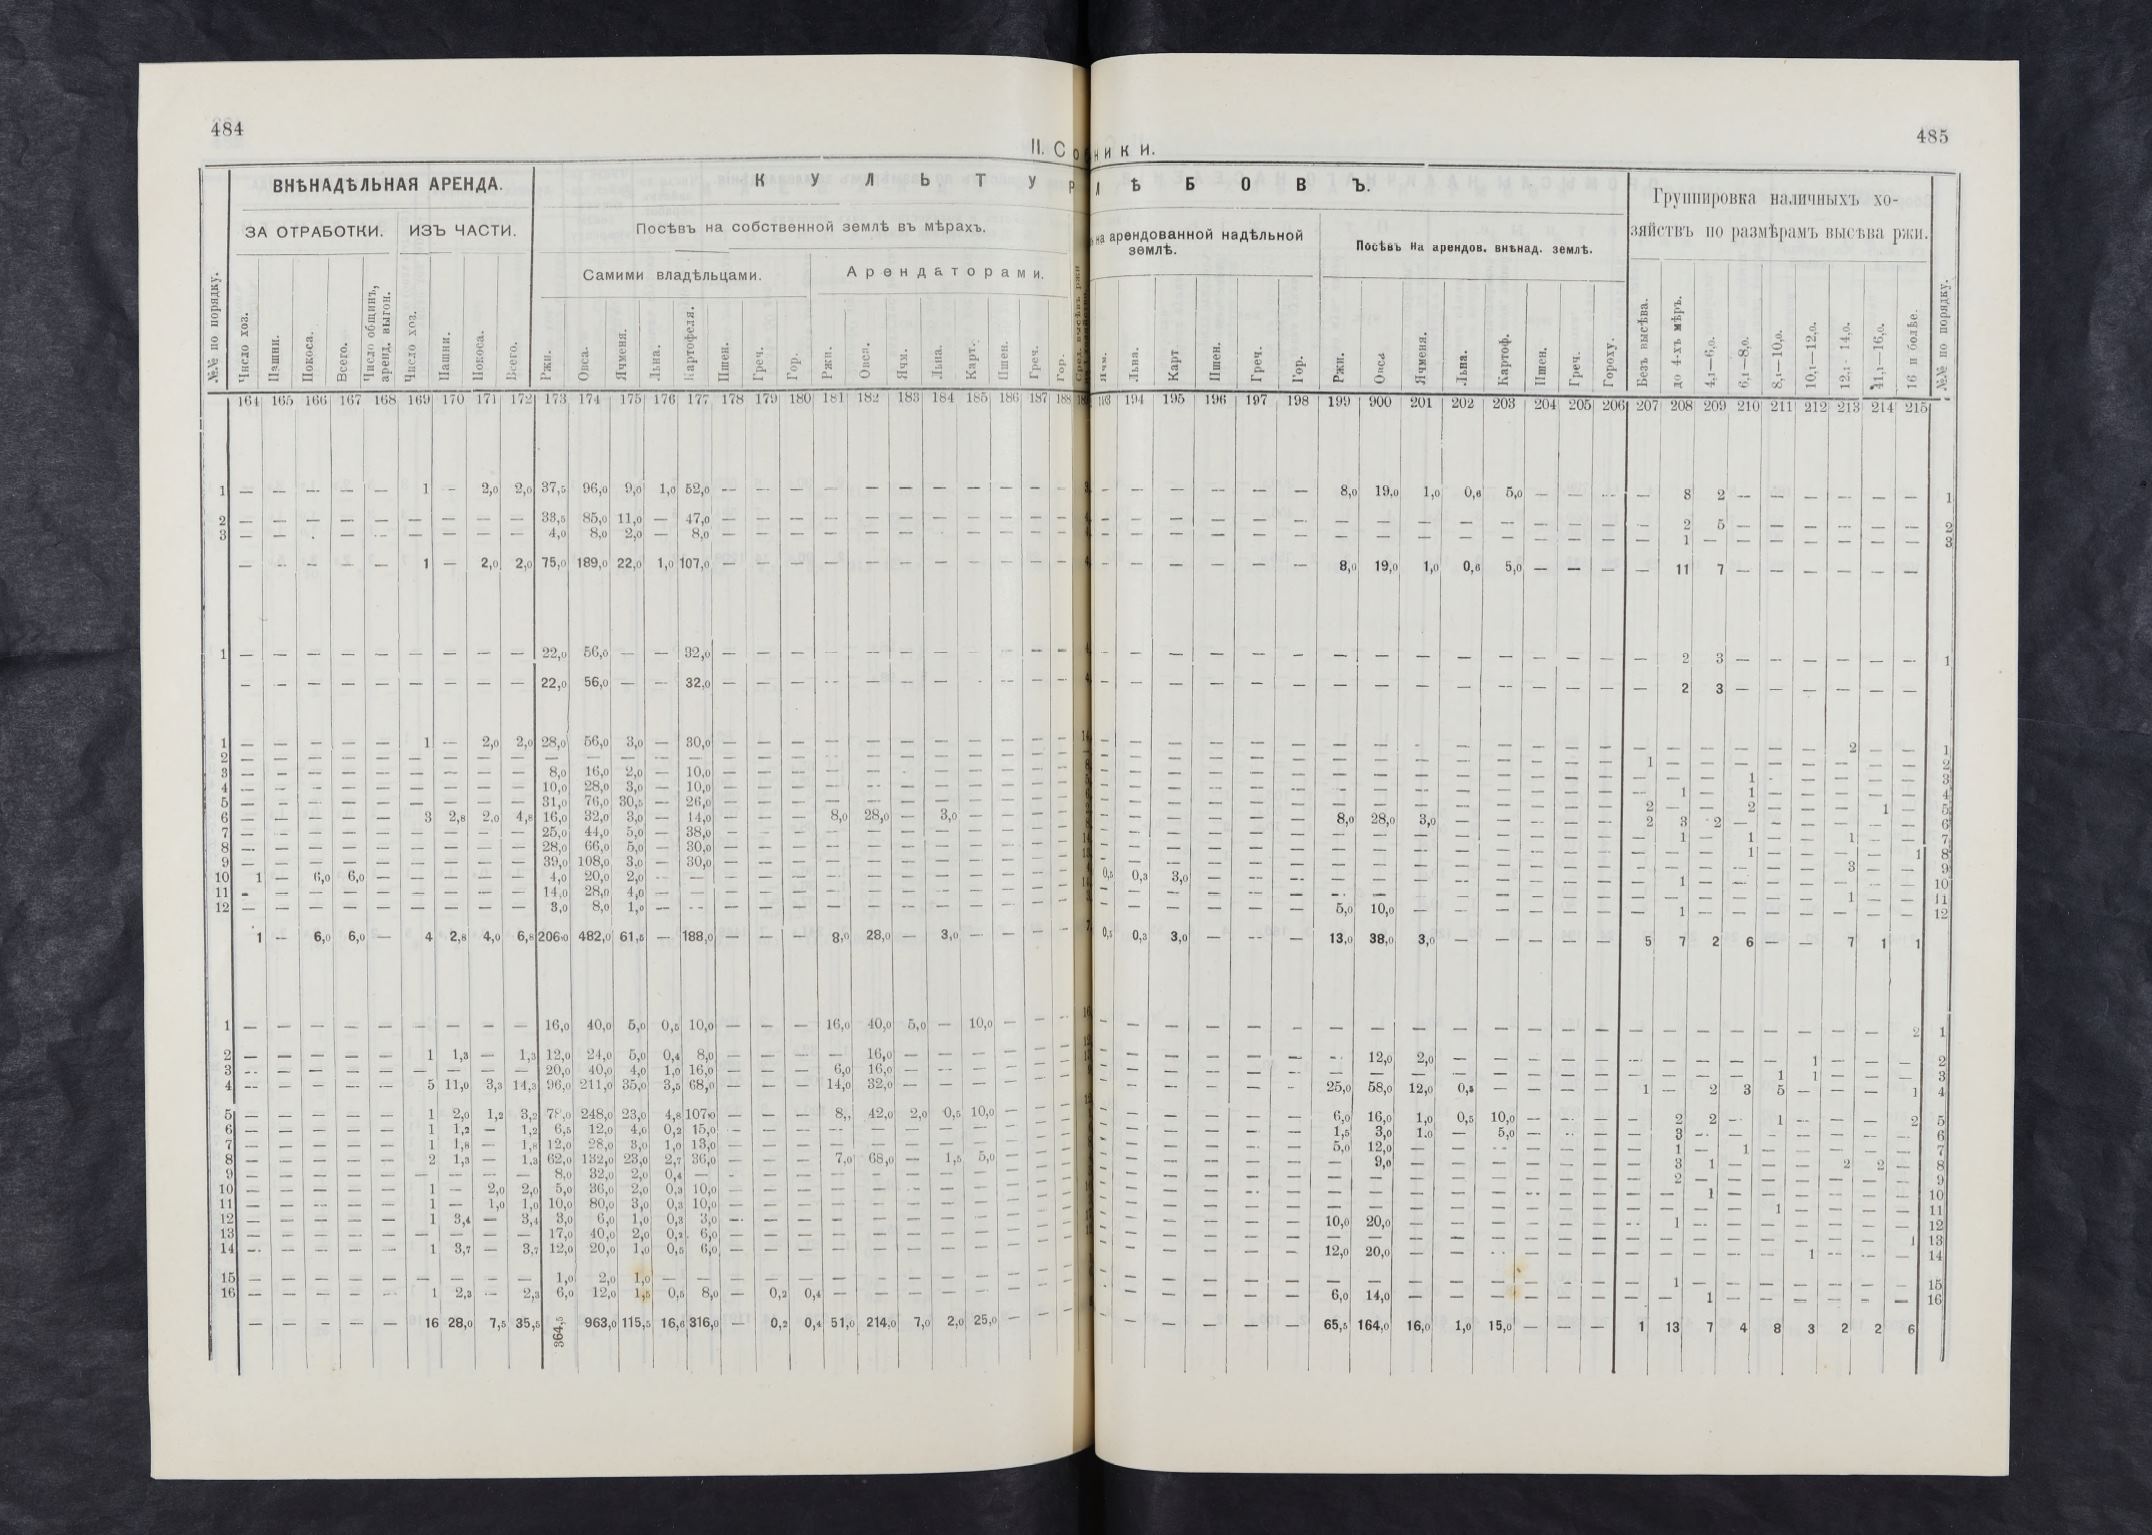 484
II. Собники.
485
ВНѢНАДѢЛЬНАЯ АРЕНДА.
К У Л Ь Т У Р
Л Ѣ Б О В Ъ.
Группировка наличныхъ хо-
зяйствъ по размѣрамъ высѣва ржи.
ЗА ОТРАБОТКИ. ИЗЪ ЧАСТИ.
Посѣвъ на собственной землѣ въ мѣрахъ.
на арендованной надѣльной
землѣ.
Посѣвъ на арендов. внѣнад. землѣ.
Самими владѣльцами. Арендаторами.
№№ по порядку. Число хоз. Пашни. Покоса. Всего. Число общинъ, аренд. выгон. Число хоз. Пашни. Покоса. Всего. Ржи. Овса. Ячменя. Льна. Картофеля. Пшен. Греч. Гор. Ржи. Овса. Ячм. Льна. Карт. Пшен. Греч. Гор.
Ячм. Льна. Карт Пшен. Греч. Гор. Ржи. Овса Ячменя. Льна. Картоф. Пшен. Греч. Гороху. Безъ высѣва. до 4-хъ мѣръ. 4,1—6,0. 6,1—8,0. 8,1—10,0. 10,1—12,0. 12,1- 14,0. 41,1—16,0. 16 и болѣе. №№ по порядку.
164 165 166 167 168 169 170 171 172 173 174 175 176 177 178 179 180 181 182 183 184 185 186 187 188
193 194 195 196 197 198 199 900 201 202 203 204 205 206 207 208 209 210 211 212 213 214 215
1 — — — — — 1 — 2,0 2,0 37,5 96,0 9,0 1,0 52,0 — — — — — — — — — — —
— — — — — — 8,0 19,0 1,0 0,6 5,0 — — — — 8 2 — — — — — — 1
2 — — — — — — — — — 33,5 85,0 11,0 — 47,0 — — — — — — — — — — —
— — — — — — — — — — — — — — — 2 5 — — — — — — 2
3 — — . — — — — — — 4,0 8,0 2,0 — 8,0 — — — — — — — — — — —
— — — — — — — — — — — — — — — 1 — — — — — — — 3
— — — — — 1 — 2,0 2,0 75,0 189,0 22,0 1,0 107,0 — — — — — — — — — — —
— — — — — — 8,0 19,0 1,0 0,6 5,0 — — — — 11 7 — — — — — —
1 — — — — — — — — — 22,0 56,0 — — 32,0 — — — — — — — — — — —
— — — — — — — — — — — — — — — 2 3 — — — — — — 1
— — — — — — — — — 22,0 56,0 — — 32,0 — — — — — — — — — — —
— — — — — — — — — — — — — — — 2 3 — — — — — —
1 — — — — — 1 — 2,0 2,0 28,0 56,0 3,0 — 30,0 — — — — — — — — — — —
— — — — — — — — — — — — — — — — — — — — 2 — — 1
2 — — — — — — — — — — — — — — — — — — — — — — — — —
— — — — — — — — — — — — — — 1 — — — — — — — — 2
3 — — — — — — — — — 8,0 16,0 2,0 — 10,0 — — — — — — — — — — —
— — — — — — — — — — — — — — — — — 1 — — — — — 3
4 — — — — — — — — — 10,0 28,0 3,0 — 10,0 — — — — — — — — — — —
— — — — — — — — — — — — — — — 1 — 1 — — — — — 4
5 — — — — — — — — — 31,0 76,0 30,5 — 26,0 — — — — — — — — — — —
— — — — — — — — — — — — — — 2 — — 2 — — — 1 — 5
6 — — — — — 3 2,8 2,0 4,8 16,0 32,0 3,0 — 14,0 — — — 8,0 28,0 — 3,0 — — — —
— — — — — — 8,0 28,0 3,0 — — — — — 2 3 2 — — — — — — 6
7 — — — — — — — — — 25,0 44,0 5,0 — 38,0 — — — — — — — — — — —
— — — — — — — — — — — — — — — 1 — 1 — — 1 — — 7
8 — — — — — — — — — 28,0 66,0 5,0 — 30,0 — — — — — — — — — — —
— — — — — — — — — — — — — — — — — 1 — — — — 1 8
9 — — — — — — — — — 39,0 108,0 3,0 — 30,0 — — — — — — — — — — —
— — — — — — — — — — — — — — — — — — — — 3 — — 9
10 1 — 6,0 6,0 — — — — — 4,0 20,0 2,0 — — — — — — — — — — — — —
0,5 0,3 3,0 — — — — — — — — — — — — 1 — — — — — — — 10
11 - — — — — — — — — 14,0 28,0 4,0 — — — — — — — — — — — — —
— — — — — — — — — — — — — — — — — — — — 1 — — 11
12 — — — — — — — — — 3,0 8,0 1,0 — — — — — — — — — — — — —
— — — — — — 5,0 10,0 — — — — — — — 1 — — — — — — — 12
1 — 6,0 6,0 — 4 2,8 4,0 6,8 206,0 482,0 61,5 — 188,0 — — — 8,0 28,0 — 3,0 — — — —
0,5 0,3 3,0 — — — 13,0 38,0 3,0 — — — — — 5 7 2 6 — — 7 1 1
1 — — — — — — — — — 16,0 40,0 5,0 0,5 10,0 — — — 16,0 40,0 5,0 — 10,0 — — —
— — — — — — — — — — — — — — — — — — — — — — 2 1
2 — — — — — 1 1,3 — 1,3 12,0 24,0 5,0 0,4 8,0 — — — — 16,0 — — — — — —
— — — — — — — 12,0 2,0 — — — — — — — — — — 1 — — — 2
3 — — — — — — — — — 20,0 40,0 4,0 1,0 16,0 — — — 6,0 16,0 — — — — — —
— — — — — — — — — — — — — — — — — — 1 1 — — — 3
4 — — — — — 5 11,0 3,3 14,3 96,0 211,0 35,0 3,5 68,0 — — — 14,0 32,0 — — — — — —
— — — — — — 25,0 58,0 12,0 0,5 — — — — 1 — 2 3 5 — — — 1 4
5 — — — — — 1 2,0 1,2 3,2 78,0 248,0 23,0 4,8 107,0 — — — 8,, 42,0 2,0 0,5 10,0 — — —
— — — — — — 6,0 16,0 1,0 0,5 10,0 — — — — 2 2 — 1 — — — 2 5
6 — — — — — 1 1,2 — 1,2 6,5 12,0 4,0 0,2 15,0 — — — — — — — — — — —
— — — — — — 1,5 3,0 1,0 — 5,0 — — — — 3 — — — — — — — 6
7 — — — — — 1 1,8 — 1,8 12,0 28,0 3,0 1,0 13,0 — — — — — — — — — — —
— — — — — — 5,0 12,0 — — — — — — — 1 — 1 — — — — — 7
8 — — — — — 2 1,3 — 1,3 62,0 132,0 23,0 2,7 36,0 — — — 7,0 68,0 — 1,5 5,0 — — —
— — — — — — — 9,0 — — — — — — — 3 1 — — — 2 2 — 8
9 — — — — — — — — — 8,0 32,0 2,0 0,4 — — — — — — — — — — — —
— — — — — — — — — — — — — — — 2 — — — — — — — 9
10 — — — — — 1 — 2,0 2,0 5,0 36,0 2,0 0,3 10,0 — — — — — — — — — — —
— — — — — — — — — — — — — — — — 1 — — — — — — 10
11 — — — — — 1 — 1,0 1,0 10,0 80,0 3,0 0,3 10,0 — — — — — — — — — — —
— — — — — — — — — — — — — — — — — — 1 — — — — 11
12 — — — — — 1 3,4 — 3,4 3,0 6,0 1,0 0,3 3,0 — — — — — — — — — — —
— — — — — — 10,0 20,0 — — — — — — — 1 — — — — — — — 12
13 — — — — — — — — — 17,0 40,0 2,0 0,2 6,0 — — — — — — — — — — —
— — — — — — — — — — — — — — — — — — — — — — 1 13
14 — — — — — 1 3,7 — 3,7 12,0 20,0 1,0 0,5 6,0 — — — — — — — — — — —
— — — — — — 12,0 20,0 — — — — — — — — — — — 1 — — — 14
15 — — — — — — — — — 1,0 2,0 1,0 — — — — — — — — — — — — —
— — — — — — — — — — — — — — — 1 — — — — — — — 15
16 — — — — — 1 2,3 — 2,3 6,0 12,0 1,5 0,5 8,0 — 0,2 0,4 — — — — — — — —
— — — — — — 6,0 14,0 — — — — — — — — 1 — — — — — — 16
— — — — — 16 28,0 7,5 35,5 364,5 963,0 115,5 16,6 316,0 — 0,2 0,4 51,0 214,0 7,0 2,0 25,0 — — —
— — — — — — 65,5 164,0 16,0 1,0 15,0 — — — 1 13 7 4 8 3 2 2 6